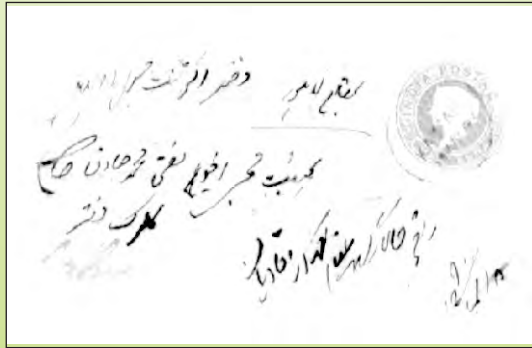 بمقام لاہور دفتر اکونٹنٹ جنرل
بخدمت محبی اخویم مفتی محمد صادق صاحب
کلرک دفتر
راقم خاکسار غلام احمد از قادیان
INDIA POSTAGE